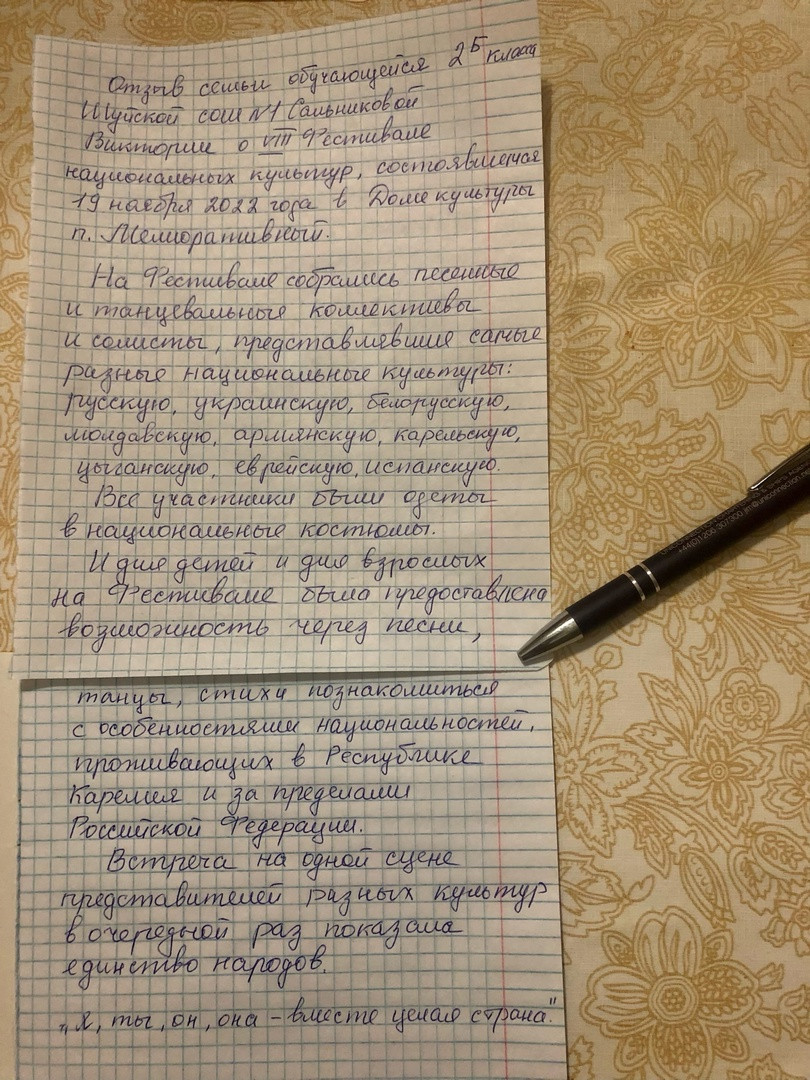 Отзыв семьи обучающейся 2Б класса
Шуйской сош №1 Сальниковой
Виктории о VIII Фестивале
национальных культур, состоявшегося
19 ноября 2022 года в Доме культуры
п. Мелиоративный.
На Фестивале собрались песенные
и танцевальные коллективы
и солисты, представлявшие самые
разные национальные культуры:
русскую, украинскую, белорусскую,
молдавскую, армянскую, карельскую,
цыганскую, еврейскую, испанскую.
Все участники были одеты
в национальные костюмы.
И для детей и для взрослых
на Фестивале была предоставлена
возможность через песни,
танцы, стихи познакомиться
с особенностями национальностей,
проживающих в Республике
Карелия и за пределами
Российской Федерации.
Встреча на одной сцене
представителей разных культур
в очередной раз показала
единство народов.
„Я, ты, он, она – вместе целая страна."